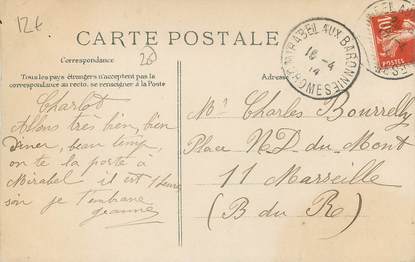 12€
CARTE POSTALE
Correspondance
26
Tous les pays étrangers n'acceptent pas la
correspondance au recto, se renseigner à la Poste
Charlot
Allons très bien, bien
Diner, beau temp,
on te la poste à
Mirabel il est 1 heure
soir je t'embrasse
Jeanne
Adresse
MIRABEL AUX BARONNIES
16-4
14
DROME
10
POSTES
Mr Charles Bourrelly
Place N.D. du Mont
11 Marseille
(B du R)